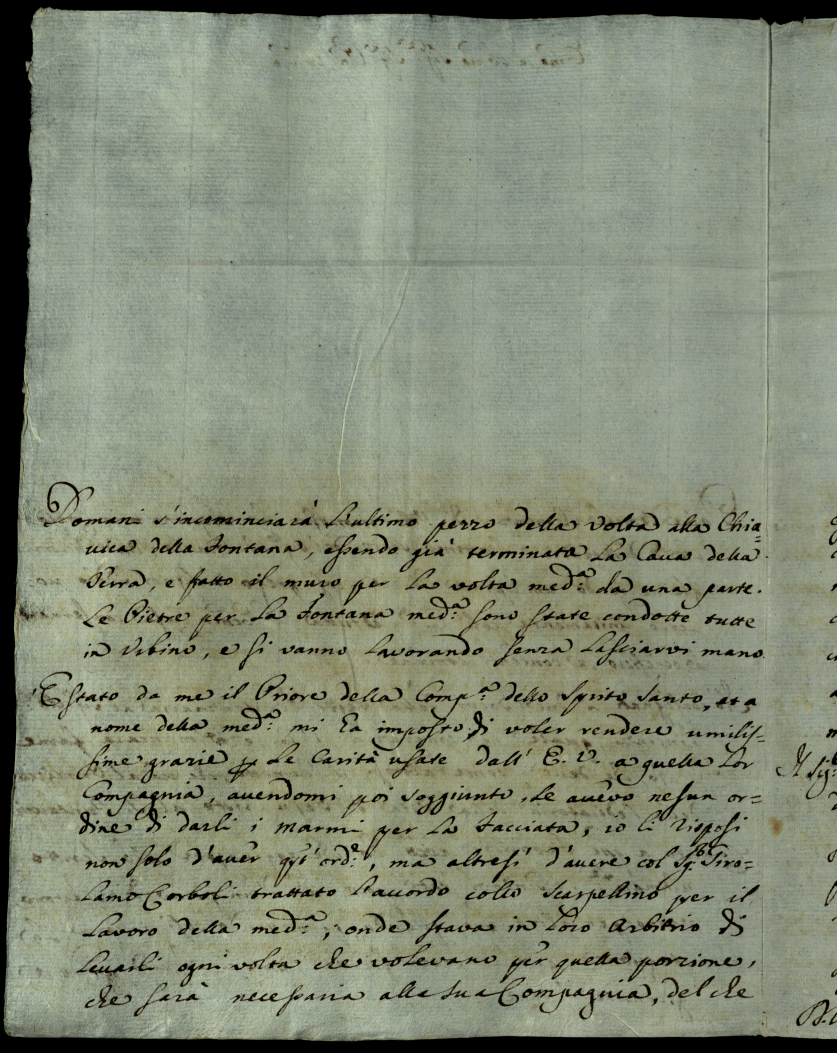 Domani s'incominciarà l'ultimo pezzo della volta alla Chia=
uica della Fontana, essendo già terminata la Caua della
Terra, e fatto il muro per la volta med.ª da una parte.
Le Pietre per la Fontana med.ª sono state condotte tutte
in Urbino, e si vanno lavorando senza lasciarvi mano.
E stato da me il Priore della Comp.ª dello Spirito Santo, et a
nome della med.ª mi ha imposto di voler rendere umilis=
sime grazie p le Carità usate dall' E. V. a quella lor
Compagnia, auendomi poi soggiunto, se auevo nessun or=
dine di darli i marmi per la Facciata, io li risposi
non solo d'auer qst' ord.e, ma altresì d'auere col Sig. Giro=
lamo Corboli trattato l'accordo collo Scarpellino per il
Lavoro della med.ª, onde staua in loro Arbitrio di
leuarli ogni volta che volevano per quella porzione,
che sarà necessaria alla sua Compagnia, del che